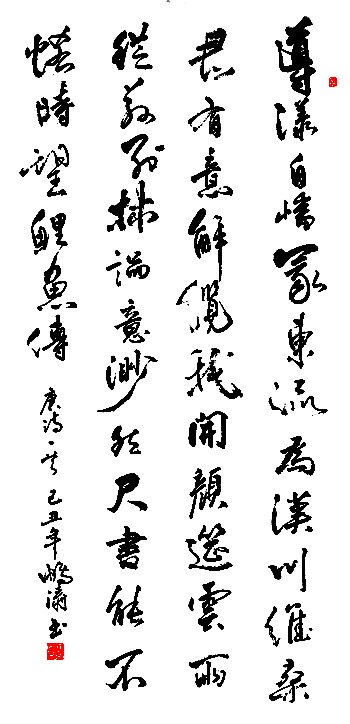 導漾自嶓冢東流為漢川維桑
君有意解纜我開顏筵雲雨
從茲別林端意渺然尺書能不
悋時望鯉魚傳
唐詩一首己丑年鵬濤書